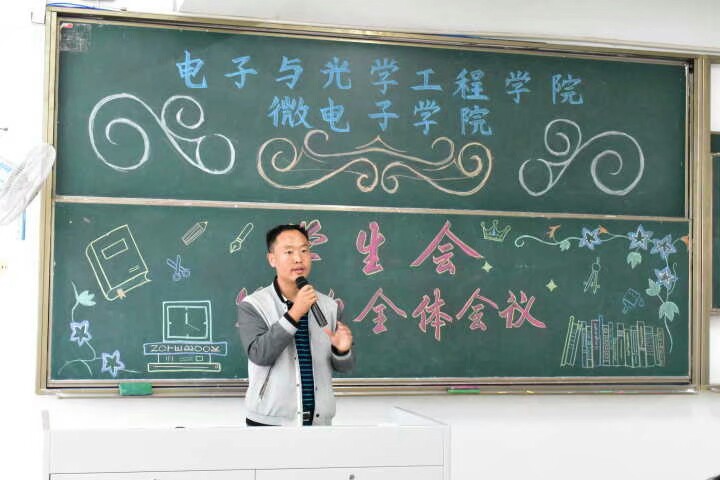 电子与光学工程学院
微电子学院
学生会
全体会议
NOTEBOOK